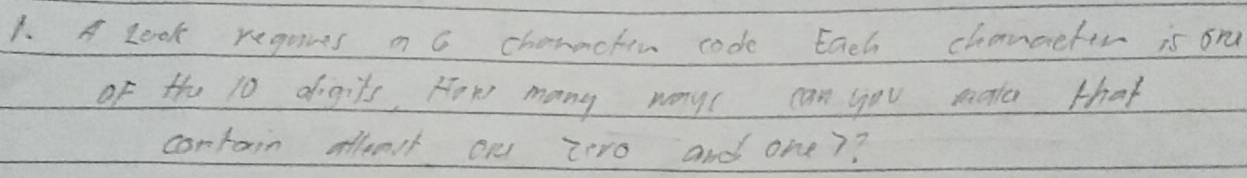 1. A Look requires a 6 character code Each character is one
of the 10 digits. How many ways can you make that
contain atleast one zero and one??